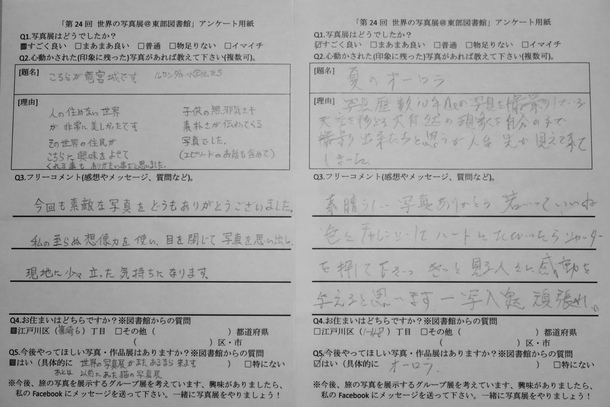 「第24回 世界の写真展@東部図書館」アンケート用紙
Q1.写真展はどうでしたか?
■すごく良い □まあまあ良い □普通 □物足りない □イマイチ
Q2.心動かされた(印象に残った)写真があれば教えて下さい(複数可)。
[題名]
こちらが竜宮城です
[理由]
人の住めない世界
が非常に美しかったです
その世界の住民が
こちらに興味をよせて
子供の無邪気さや
素朴さが伝わってくる
写真でした。
(エピソードのお話も含めて)
Q3.フリーコメント(感想やメッセージ、質問など)。
今回も素敵な写真をどうもありがとうございました。
私の至らぬ想像力を使い、目を閉じて写真を思い出し、
現地に少々立った気持ちになります。
Q4.お住まいはどちらですか?※図書館からの質問
■江戸川区(篠崎6)丁目 □その他( )都道府県
( )区・市
Q5.今後やってほしい写真・作品展はありますか?※図書館からの質問
■はい(具体的に 世界の写真展がまたあるなら来ます )□特にない
以前にあった猫の写真展
※今後、旅の写真を展示するグループ展を考えています、興味がありましたら、
私のFacebookにメッセージを送って下さい。一緒に写真展をやりましょう!
「第24回 世界の写真展@東部図書館」アンケート用紙
Q1.写真展はどうでしたか?
☑すごく良い □まあまあ良い □普通 □物足りない □イマイチ
Q2.心動かされた(印象に残った)写真があれば教えて下さい(複数可)。
[題名]
夏のオーロラ
[理由]
しました。
Q3.フリーコメント(感想やメッセージ、質問など)。
素晴らしい写真ありがとう 若いっていいね
色々チャレンジして
を押して下さい きっと見る人に感動を
与えると思います 頑張れ。
Q4.お住まいはどちらですか?※図書館からの質問
□江戸川区( )丁目 □その他( )都道府県
( )区・市
Q5.今後やってほしい写真・作品展はありますか?※図書館からの質問
☑はい(具体的に オーロラ )□特にない
※今後、旅の写真を展示するグループ展を考えています、興味がありましたら、
私のFacebookにメッセージを送って下さい。一緒に写真展をやりましょう!